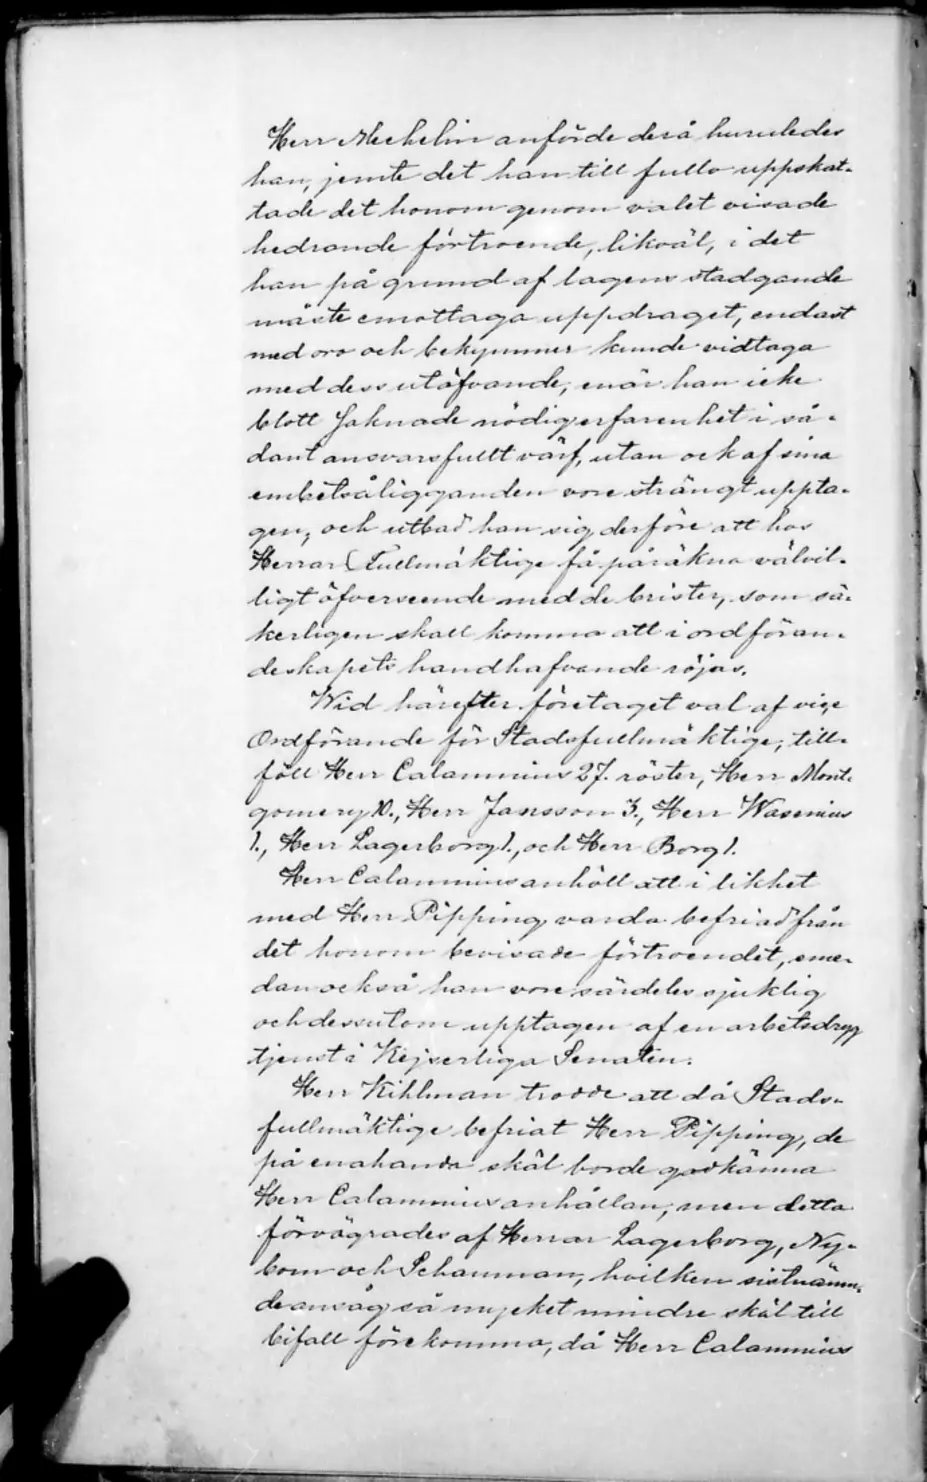 Herr Mechelin anförde derå huruledes
han, jemte det han till fullo uppskat-
tade det honom genom valet visade
hedrande förtroende, likväl, i det
han på grund af lagens stadgande
måste emottaga uppdraget, endast
med oro och bekymmer kunde vidtaga
med dess utöfvande, enär han icke
blott saknade nödig erfarenhet i så-
dant ansvarsfullt värf, utan ock af sina
embetsåligganden vore strängt uppta-
gen; och utbad han sig derföre att hos
Herrar Fullmäktige få påräkna välvil-
ligt öfverseende med de brister, som sä-
kerligen skall komma att i ordföran-
deskapets handhafvande röjas.
Wid härefter företaget val af vice
Ordförande för Stadsfullmäktige, till-
föll Herr Calamnius 27. röster, Herr Mont-
gomery 10., Herr Jansson 3., Herr Wasenius
1., Herr Lagerborg 1., och Herr Borg 1.
Herr Calamnius anhöll att i likhet
med Herr Pipping varda befriad från
det honom bevisade förtroendet, eme-
dan också han vore särdeles sjuklig
och dessutom upptagen af en arbetsdryg
tjenst i Kejserliga Senaten.
Herr Kihlman trodde att då Stads-
fullmäktige befriat Herr Pipping, de
på enahanda skäl borde godkänna
Herr Calamnius anhållan; men detta
förvägrades af Herrar Lagerborg, Ny-
bom och Schauman, hvilken sistnämn-
de ansåg så mycket mindre skäl till
bifall förekomma, då Herr Calamnius